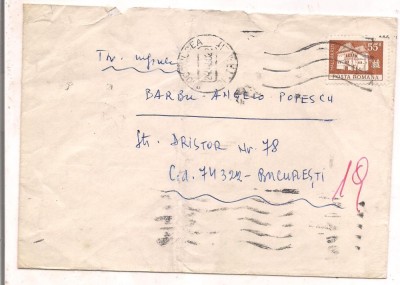 55
POSTA ROMANA
BARBU-ANGELO POPESCU
Str. ARISTOR Nr. 78
Cod. 74322-BUCUREȘTI
19